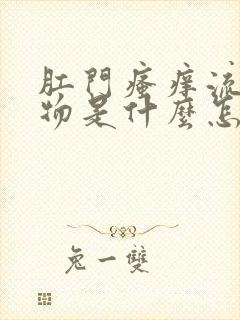 肛門瘙痒流
物是什麼怎
兔一雙